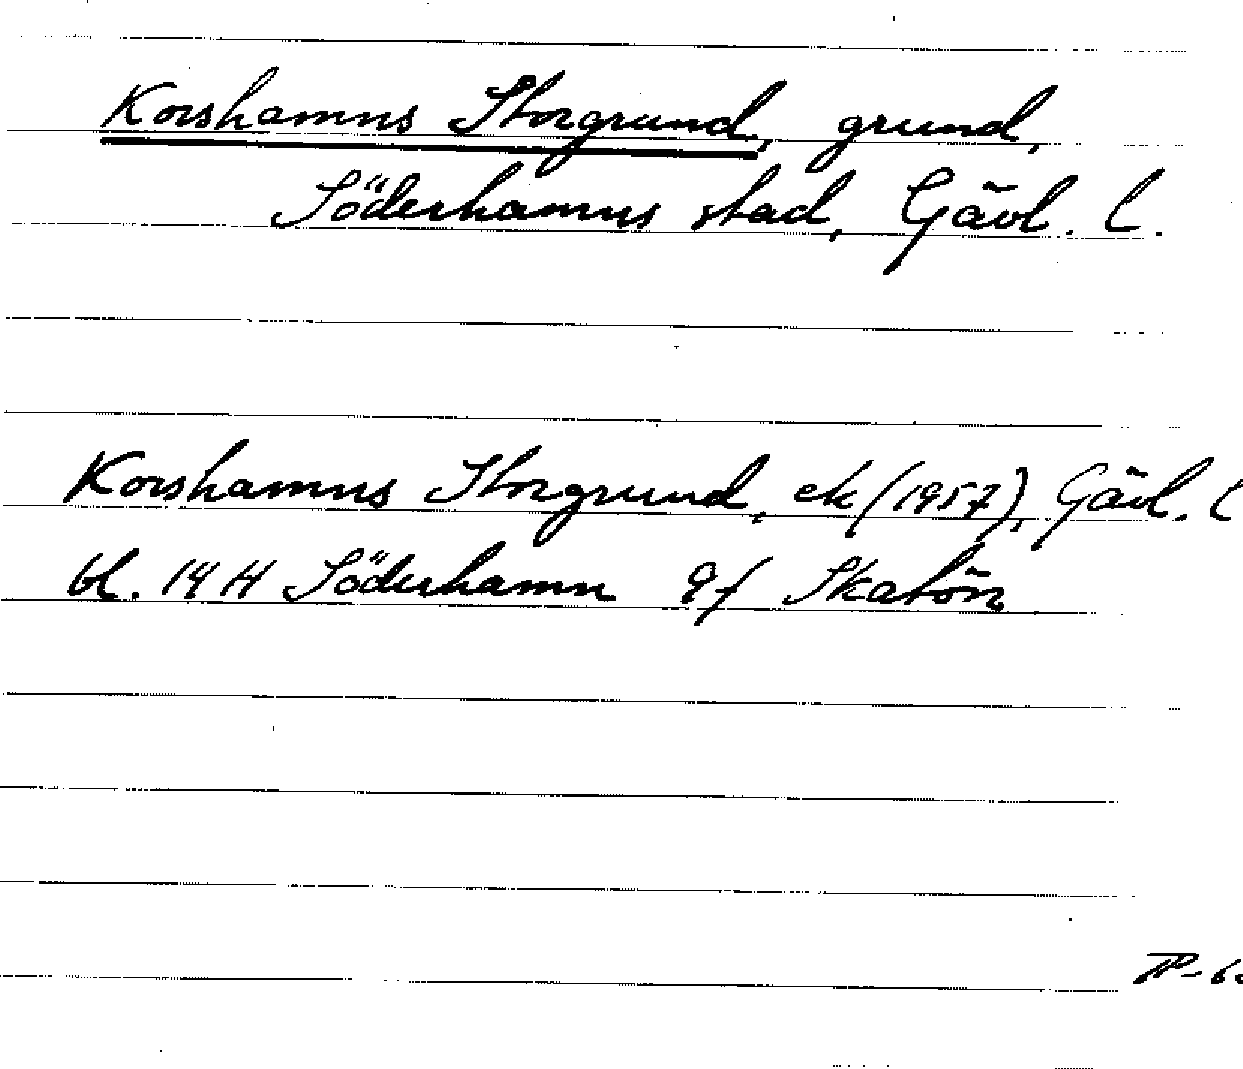 Korshamns Storgrund, grund,
Söderhamns stad, Gävl. l.
Korshamns Storgrund, ek (1957), Gävl. l
bl. 14 H Söderhamn 9f Skatön